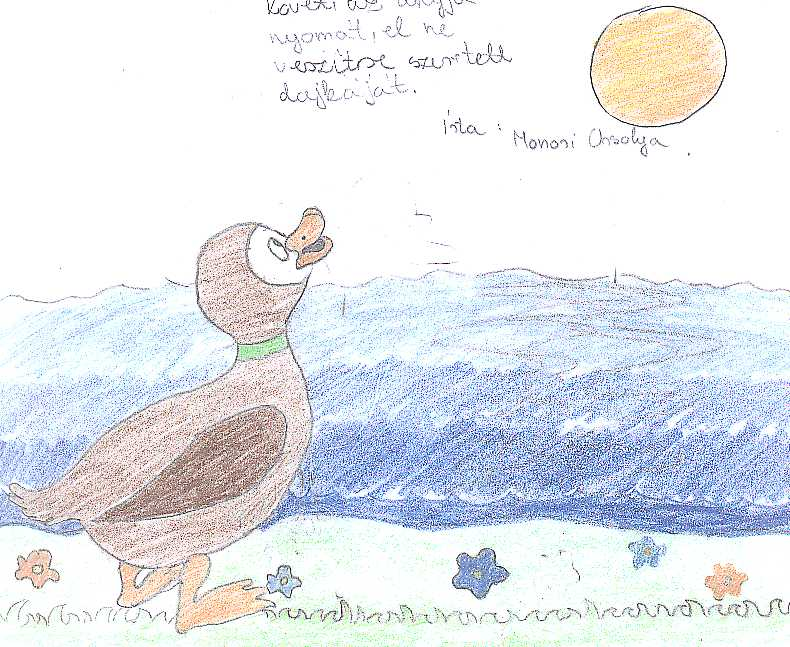 Követi az anyja
nyomát, el ne
veszítse szeretett
dajkáját.
Írta : Monori Orsolya